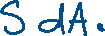 S dA.